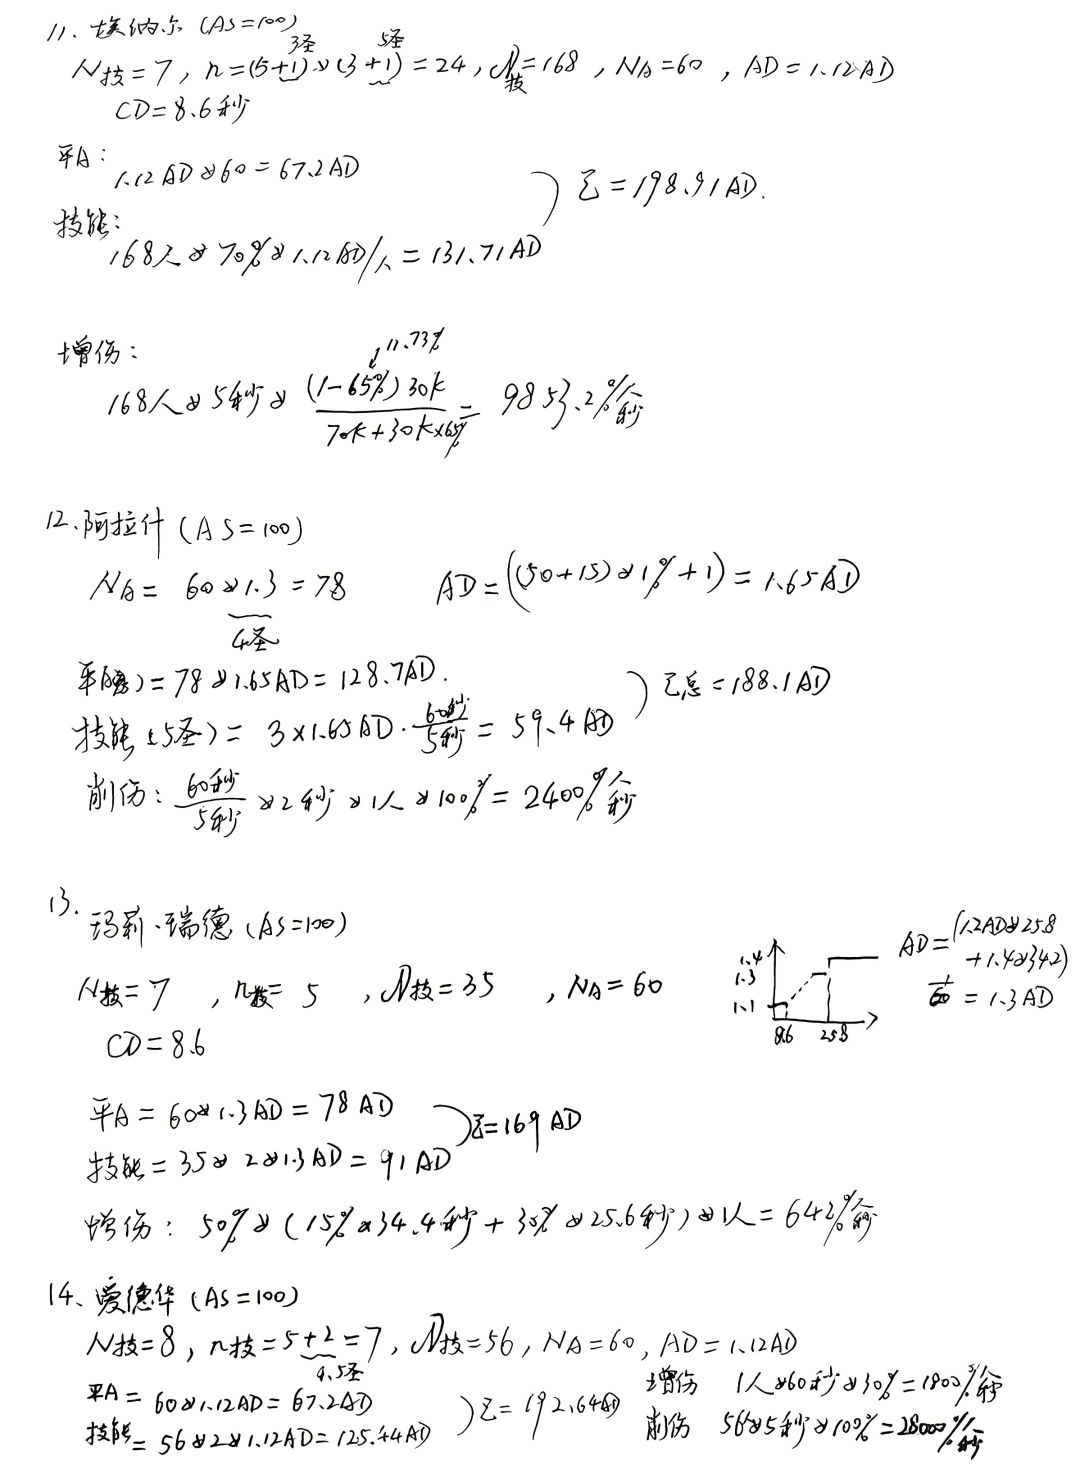 11. 埃纳尔 (AS=100)
3圣 5圣
N技=7, n=(5+1)×(3+1)=24, N技=168, NA=60, AD=1.12AD
CD=8.6秒
平A:
1.12AD×60=67.2AD
Σ=198.91AD.
技能:
168人×70%×1.12AD/人=131.71AD
增伤:
11.73%
168人×5秒×(1-65%)30k/70k+30k×65%=9853.2%人秒
12. 阿拉什 (AS=100)
NA= 60×1.3=78 AD=((50+15)×1%+1)=1.65AD
4圣
=78×1.65AD=128.7AD.
Σ总=188.1AD
技能(5圣)= 3×1.65AD·60秒/5秒=59.4AD
削伤: 60秒/5秒×2秒×1人×100%=2400%人秒
13. 玛莉·瑞德 (AS=100)
N技=7, n技=5, N技=35, NA=60
CD=8.6
1.4
1.3
1.1
8.6 25.8
AD=(1.2AD×25.8
+1.4×34.2)
1/60=1.3AD
平A=60×1.3AD=78AD
Σ=169AD
技能=35×2×1.3AD=91AD
增伤: 50%×(15%×34.4秒+30%×25.6秒)×1人=642%人秒
14. 爱德华 (AS=100)
N技=8, n技=5+2=7, N技=56, NA=60, AD=1.12AD
4.5圣
平A=60×1.12AD=67.2AD
技能=56×2×1.12AD=125.44AD
Σ=192.64AD
增伤 1人×60秒×30%=1800%人秒
削伤 56×5秒×100%=28000%人秒